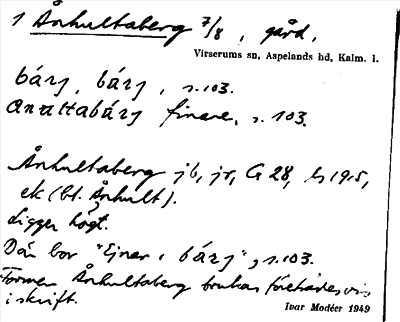 1 Ånhultaberg 7/8, gård.
Virserums sn, Aspelands hd, Kalm. l.
bárj, bárj, s. 103.
anultabárj finare, s. 103.
Ånhultaberg jb, jr, G 28, 1915,
ek (bl. Ånhult).
Ligger högt.
Där bor "Ejnar i bárj", s. 103.
Formen Ånhultaberg brukas företrädesvis
i skrift.
Ivar Modéer 1949